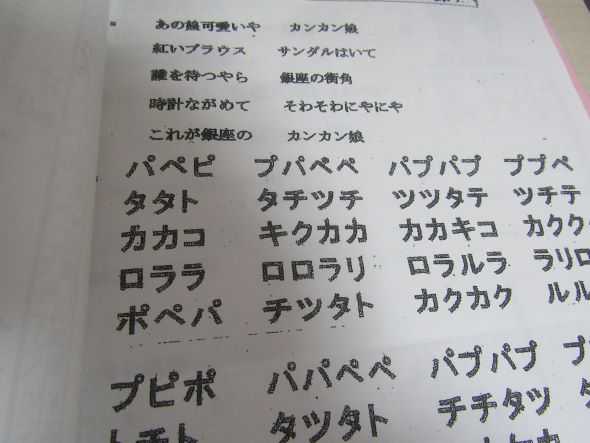 あの娘可愛いや カンカン娘
紅いブラウス サンダルはいて
誰を待つやら 銀座の街角
時計ながめて そわそわにやにや
これが銀座の カンカン娘
パペピ プパペペ パプパプ ププペ
タタト タチツチ ツツタテ ツチテ
カカコ キクカカ カカキコ カクク
ロララ ロロラリ ロラルラ ラリロ
ポペパ チツタト カクカク ルル
プピポ パパペペ パプパプ
トチト タツタト チチタツ